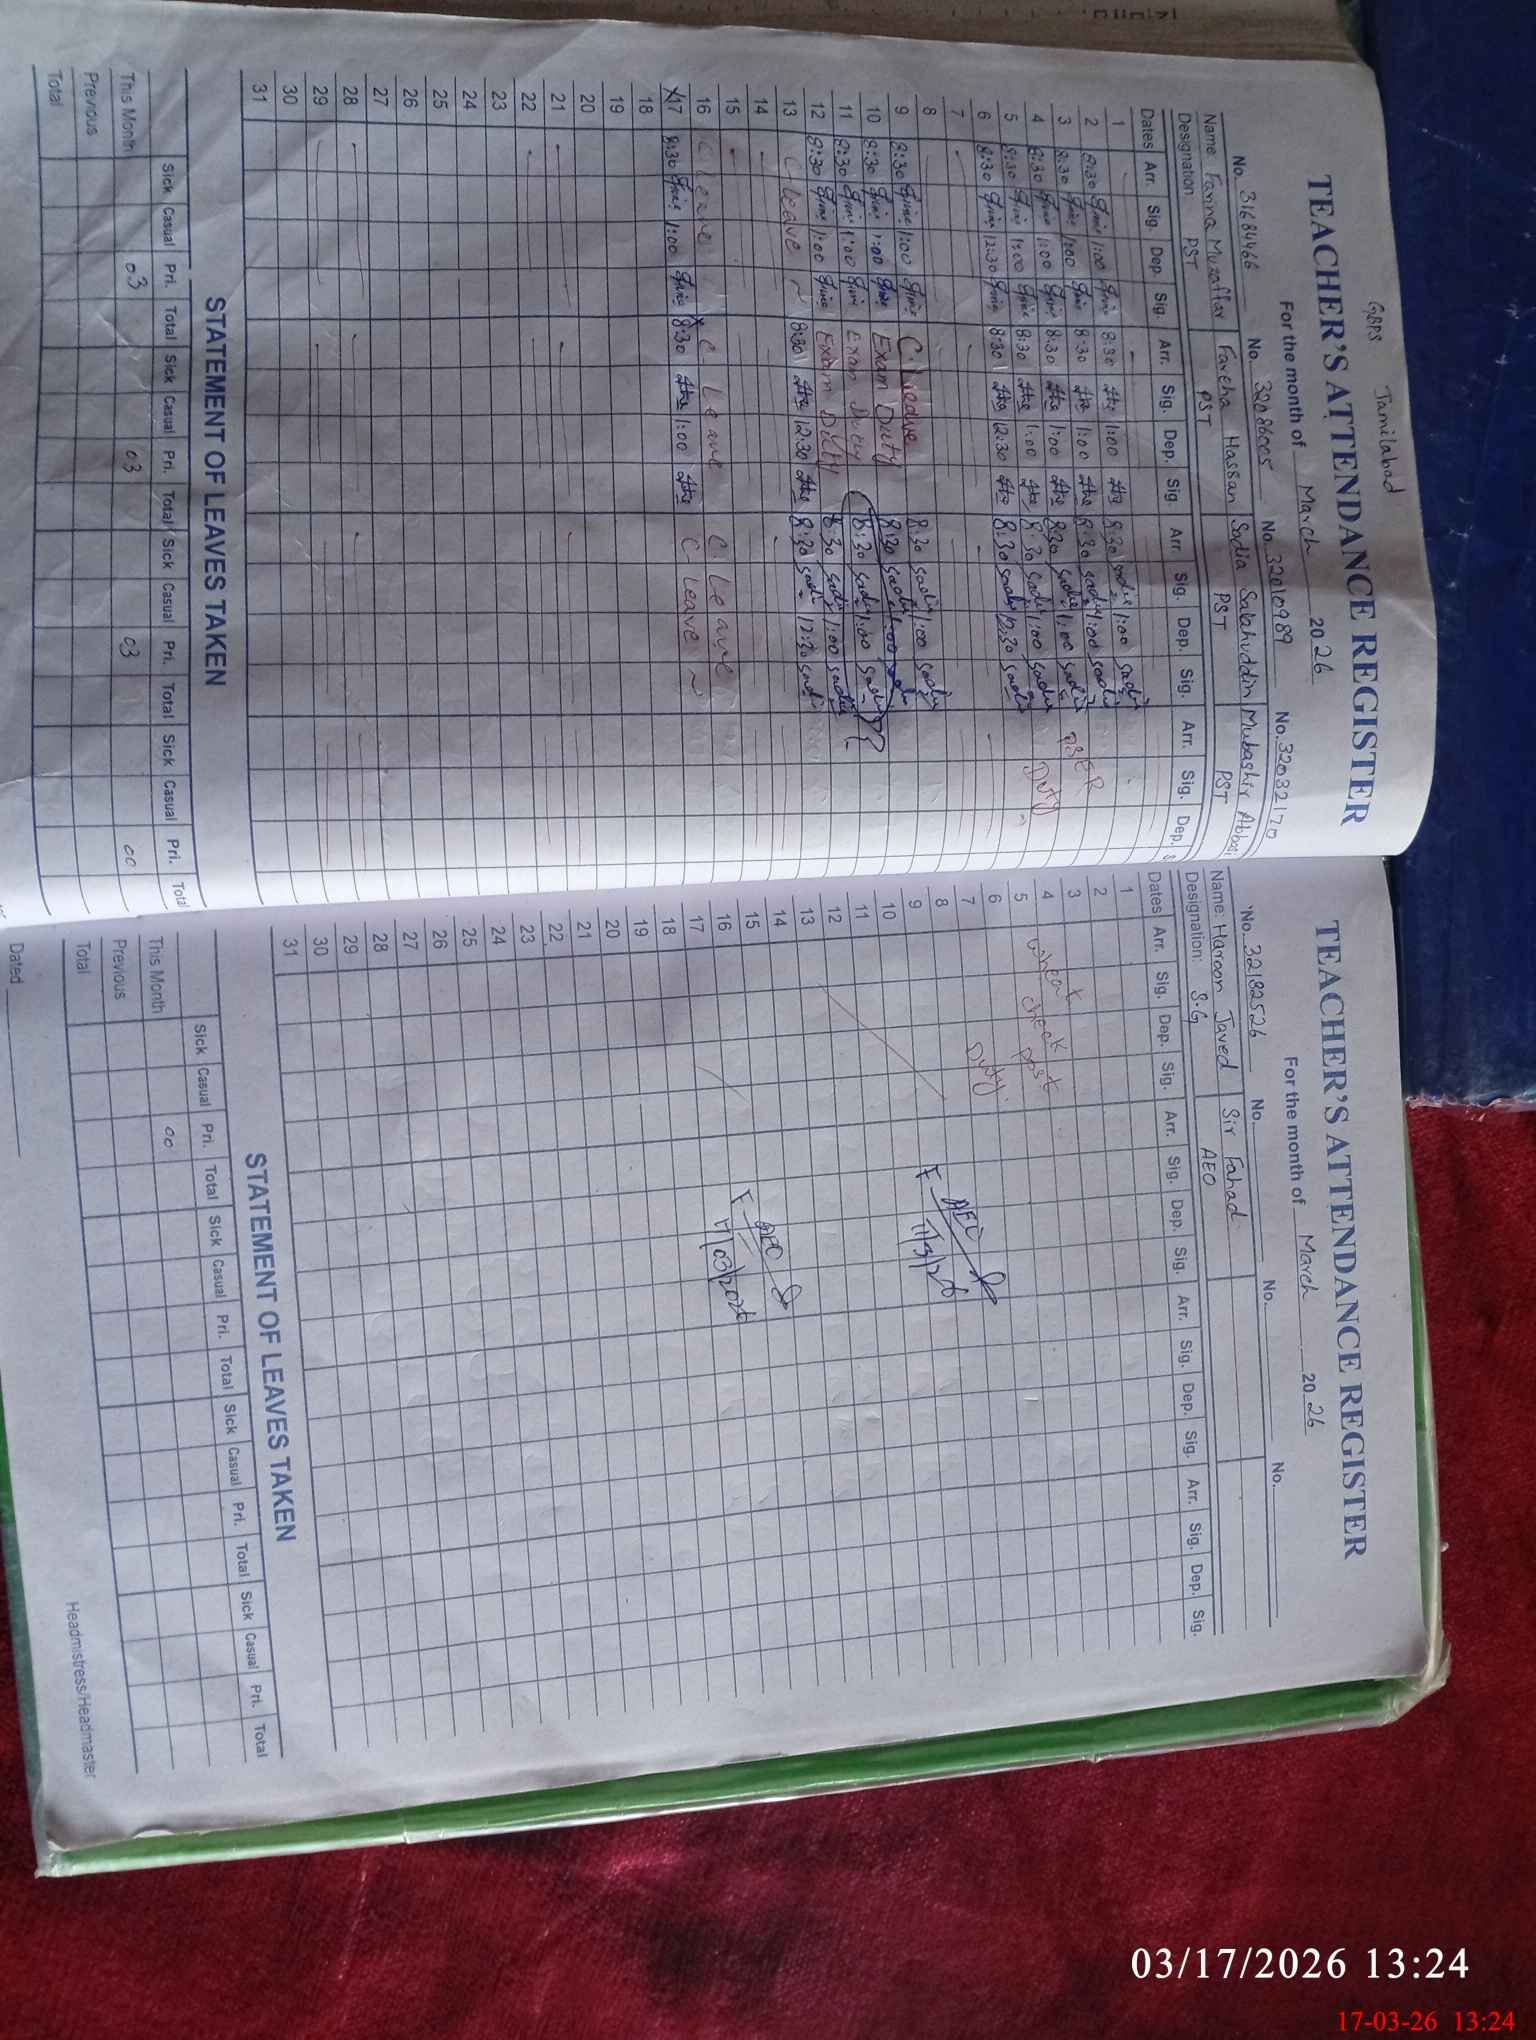 GBPS Jamilabad
TEACHER'S ATTENDANCE REGISTER
For the month of March 2026
No. 31684466 No. 32086005 No. 32010989 No. 32032170
Name: Farina Muzaffar Fareha Hassan Sadia Salahuddin Mubashir Abbasi
Designation PST PST PST PST
Dates Arr. Sig. Dep. Sig. Arr. Sig. Dep. Sig. Arr. Sig. Dep. Sig. Arr. Sig. Dep.
1
2 8:30 1:00 8:30 1:00 8:30 1:00
3 8:30 1:00 8:30 1:00 8:30 1:00
4 8:30 1:00 8:30 1:00 8:30 1:00
5 8:30 1:00 8:30 1:00 8:30 1:00 Duty
6 8:30 12:30 8:30 12:30 8:30 12:30
7
8
9 8:30 1:00 C Leave 8:30 1:00
10 8:30 1:00 Exam Duty 8:30 1:00
11 8:30 1:00 Exam Duty 8:30 1:00
12 8:30 1:00 Exam Duty 8:30 1:00
13 C Leave 8:30 12:30 8:30 12:30
14
15
16 C Leave C Leave C. Leave
17 8:30 1:00 8:30 1:00 C Leave
18
19
20
21
22
23
24
25
26
27
28
29
30
31
STATEMENT OF LEAVES TAKEN
Sick Casual Pri. Total Sick Casual Pri. Total Sick Casual Pri. Total Sick Casual Pri. Total
This Month 03 03 03 00
Previous
Total
TEACHER'S ATTENDANCE REGISTER
For the month of March 2026
No. 32182526 No. No. No.
Name: Haroon Javed Sir Fahad
Designation: S.G AEO
Dates Arr. Sig. Dep. Sig. Arr. Sig. Dep. Sig. Arr. Sig. Dep. Sig. Arr. Sig. Dep. Sig.
1
2
3
4 wheat check post
5
6 Duty
7
8 AEO
9
10
11
12
13
14
15 AEO
16 17/03/2026
17
18
19
20
21
22
23
24
25
26
27
28
29
30
31
STATEMENT OF LEAVES TAKEN
Sick Casual Pri. Total Sick Casual Pri. Total Sick Casual Pri. Total Sick Casual Pri. Total
This Month 00
Previous
Total
Dated
Headmistress/Headmaster
03/17/2026 13:24
17-03-26 13:24